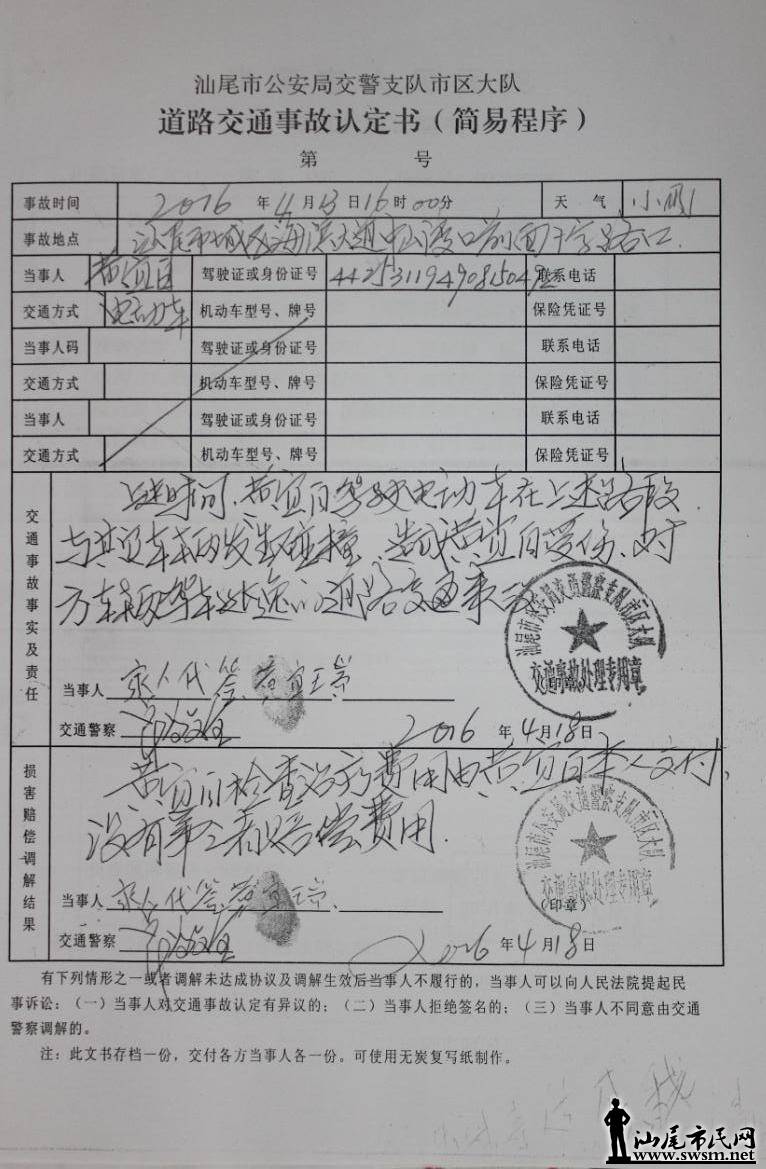 汕尾市公安局交警支队市区大队
道路交通事故认定书（简易程序）
第 号
事故时间 2016 年 4 月 13 日 16 时 00 分 天气 小雨
事故地点 汕尾市城区海滨大道中 渡口前面十字路口
当事人 黄 驾驶证或身份证号 联系电话
交通方式 电动车 机动车型号、牌号 保险凭证号
当事人码 驾驶证或身份证号 联系电话
交通方式 机动车型号、牌号 保险凭证号
当事人 驾驶证或身份证号 联系电话
交通方式 机动车型号、牌号 保险凭证号
交通事故事实及责任
上述时间、黄 驾驶电动车在上述路段
与 车辆发生碰撞、造成黄 受伤、对
方车辆驾车 逃 道路交通事故
汕尾市公安局交通警察支队市区大队
交通事故处理专用章
当事人 家人代签 黄
交通警察 2016 年 4 月 18 日
损害赔偿调解结果
黄 检查治疗费用由黄 本人支付、
没有第三者赔偿费用.
汕尾市公安局交通警察支队市区大队
交通事故处理专用章
（印章）
当事人 家人代签 黄
交通警察 2016 年 4 月 18 日
有下列情形之一或者调解未达成协议及调解生效后当事人不履行的，当事人可以向人民法院提起民
事诉讼：（一）当事人对交通事故认定有异议的；（二）当事人拒绝签名的；（三）当事人不同意由交通
警察调解的。
注：此文书存档一份，交付各方当事人各一份。可使用无炭复写纸制作。
汕尾市民网
www.swsm.net